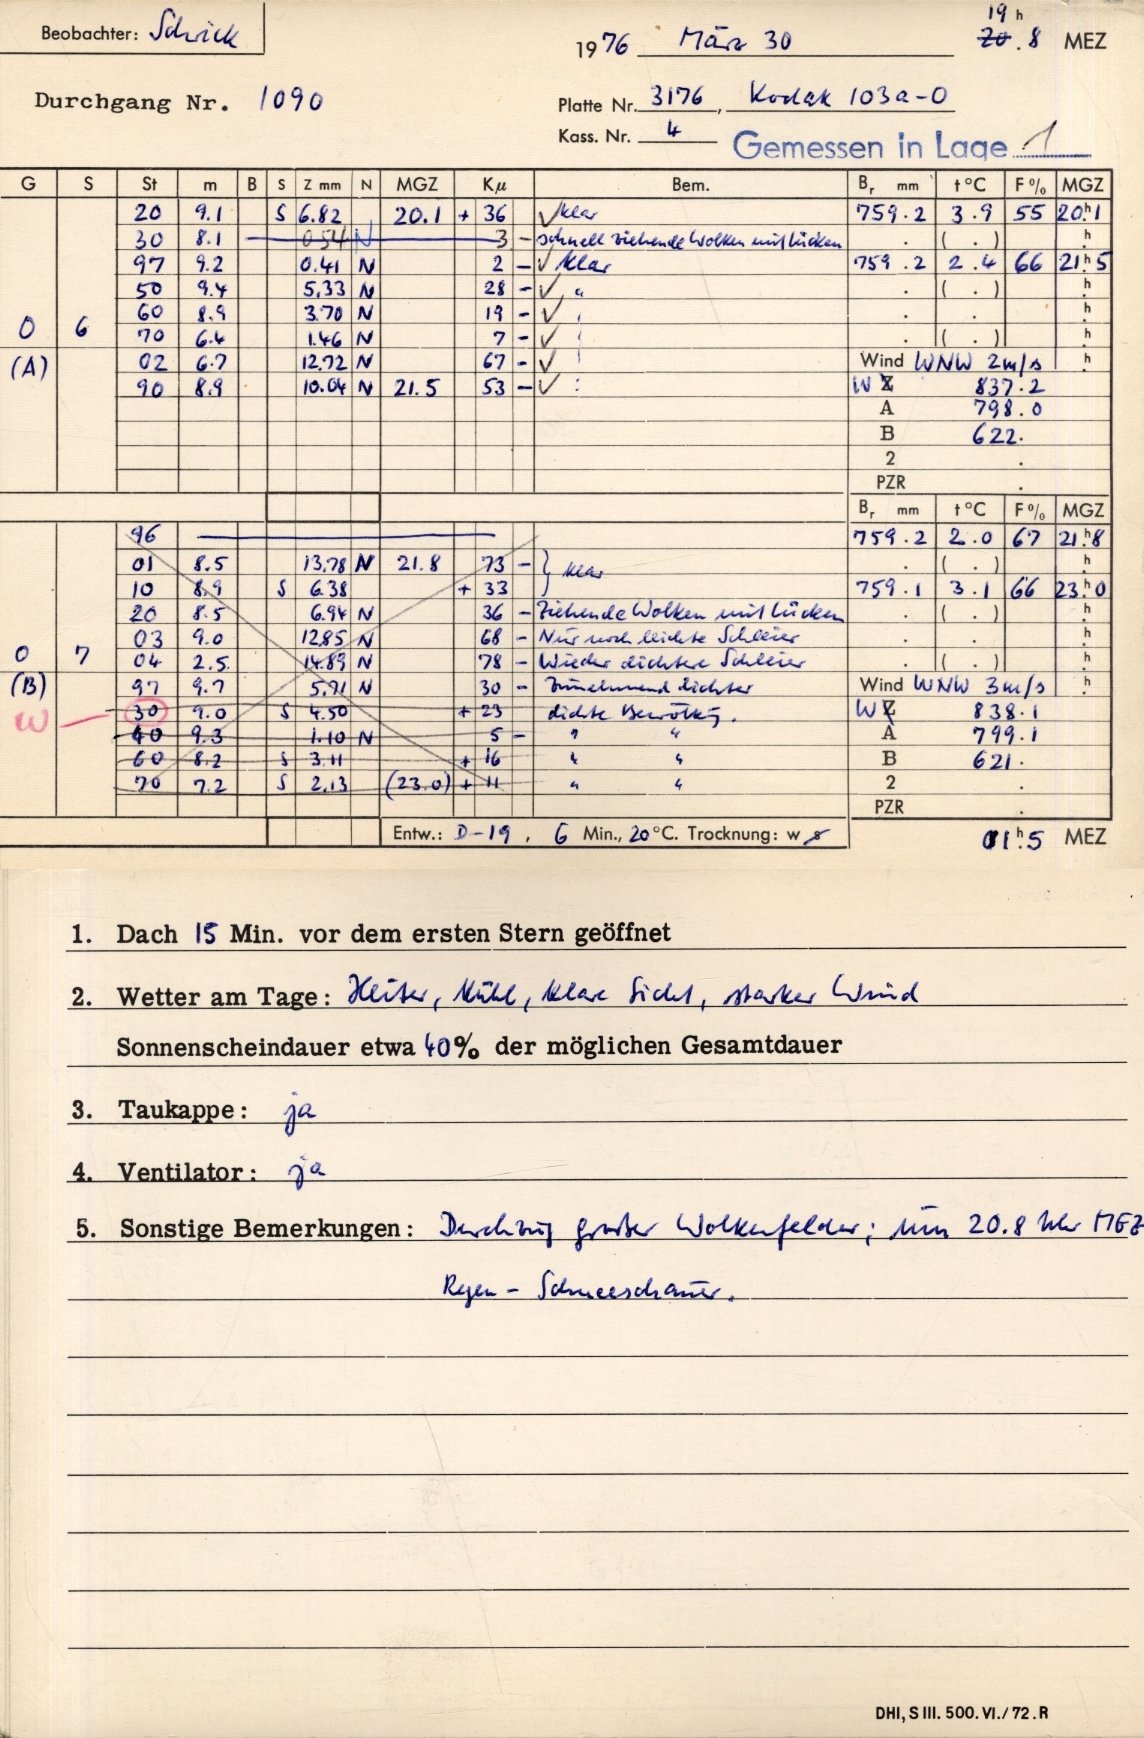 Beobachter: Schrick
19 h
1976 März 30 20.8 MEZ
Durchgang Nr. 1090
Platte Nr. 3176, Kodak 103a-O
Kass. Nr. 4
Gemessen in Lage 1
G S St m B S Z mm N MGZ Kµ Bem. Br mm t°C F% MGZ
20 9.1 S 6.82 20.1 + 36 ✓ klar 759.2 3.9 55 20h.1
30 8.1 0.54 N 3 – schnell ziehende Wolken mit Lücken . ( . ) h.
97 9.2 0.41 N 2 – ✓ klar 759.2 2.4 66 21h.5
50 9.4 5.33 N 28 – ✓ " . ( . ) h.
0 6 60 8.9 3.70 N 19 – ✓ . . h.
70 6.4 1.46 N 7 – ✓ . ( . ) h.
(A) 02 6.7 12.72 N 67 – ✓ Wind WNW 2m/s h.
90 8.9 10.04 N 21.5 53 – ✓ W Z 837.2
A 798.0
B 622.
2 .
PZR .
Br mm t°C F% MGZ
96 759.2 2.0 67 21h.8
01 8.5 13.78 N 21.8 73 – } klar . ( . ) h.
10 8.9 S 6.38 + 33 759.1 3.1 66 23h.0
20 8.5 6.94 N 36 – Ziehende Wolken mit Lücken . ( . ) h.
03 9.0 12.85 N 68 – Nur noch leichte Schleier . . h.
0 7 04 2.5 14.89 N 78 – Wieder dichtere Schleier . ( . ) h.
(B) 97 9.7 5.71 N 30 – Zunehmend dichter Wind WNW 3m/s h.
W — 30 9.0 S 4.50 + 23 dichte Bewölkg. W Z 838.1
40 9.3 1.10 N 5 – " " A 799.1
60 8.2 S 3.11 + 16 " " B 621.
70 7.2 S 2.13 (23.0) + 11 " " 2 .
PZR .
Entw.: D-19, 6 Min., 20°C. Trocknung: w s 01h.5 MEZ
1. Dach 15 Min. vor dem ersten Stern geöffnet
2. Wetter am Tage: Heiter, kühl, klare Sicht, starker Wind
Sonnenscheindauer etwa 40% der möglichen Gesamtdauer
3. Taukappe: ja
4. Ventilator: ja
5. Sonstige Bemerkungen: Durchzug großer Wolkenfelder; um 20.8 Uhr MEZ
Regen - Schneeschauer.
DHI, S III. 500. VI./72. R